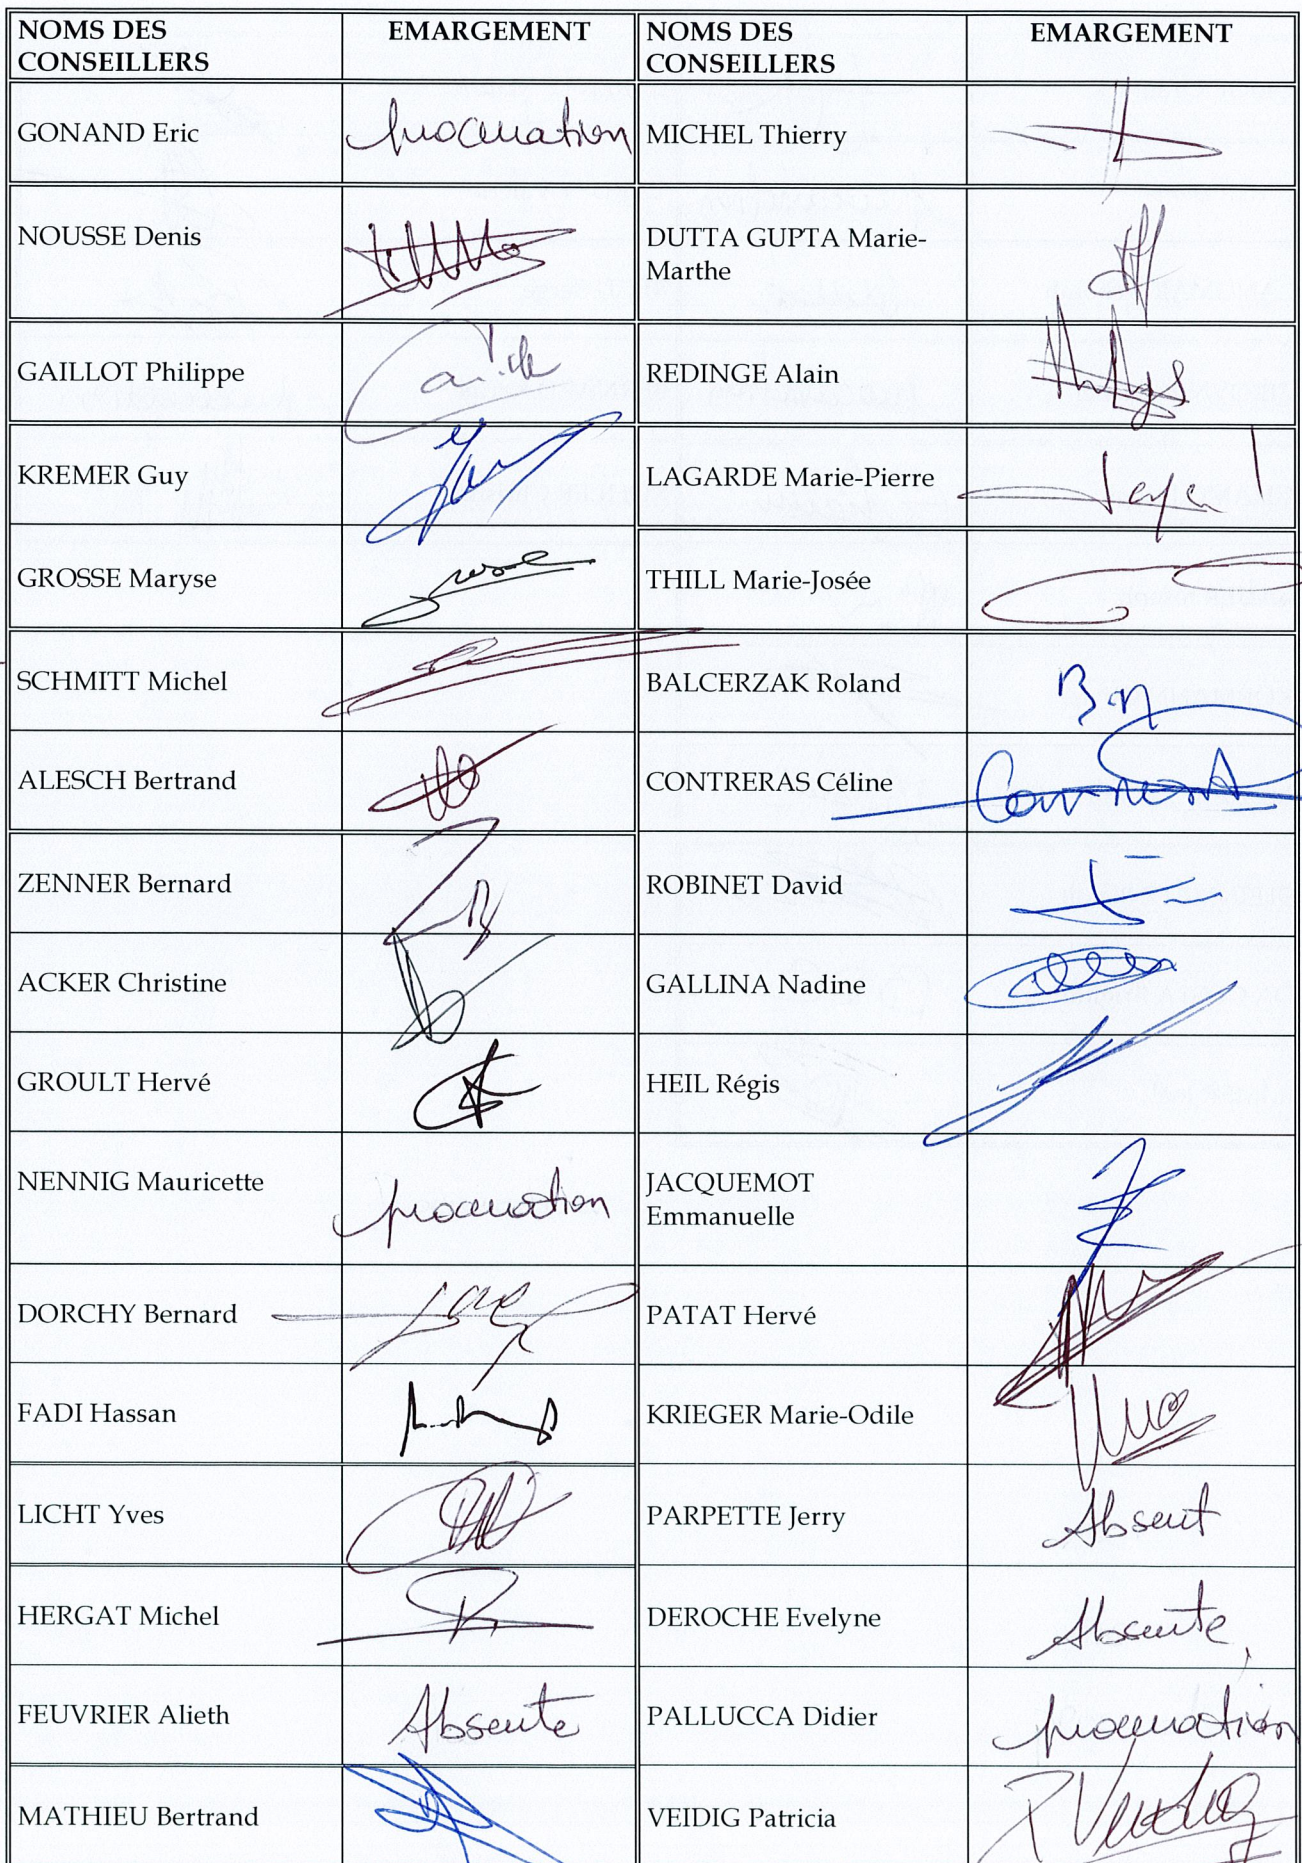 NOMS DES CONSEILLERS EMARGEMENT NOMS DES CONSEILLERS EMARGEMENT
GONAND Eric procuration MICHEL Thierry
NOUSSE Denis DUTTA GUPTA Marie-Marthe
GAILLOT Philippe REDINGE Alain
KREMER Guy LAGARDE Marie-Pierre
GROSSE Maryse THILL Marie-Josée
SCHMITT Michel BALCERZAK Roland
ALESCH Bertrand CONTRERAS Céline
ZENNER Bernard ROBINET David
ACKER Christine GALLINA Nadine
GROULT Hervé HEIL Régis
NENNIG Mauricette procuration JACQUEMOT Emmanuelle
DORCHY Bernard PATAT Hervé
FADI Hassan KRIEGER Marie-Odile
LICHT Yves PARPETTE Jerry Absent
HERGAT Michel DEROCHE Evelyne Absente
FEUVRIER Alieth Absente PALLUCCA Didier procuration
MATHIEU Bertrand VEIDIG Patricia P Veidig